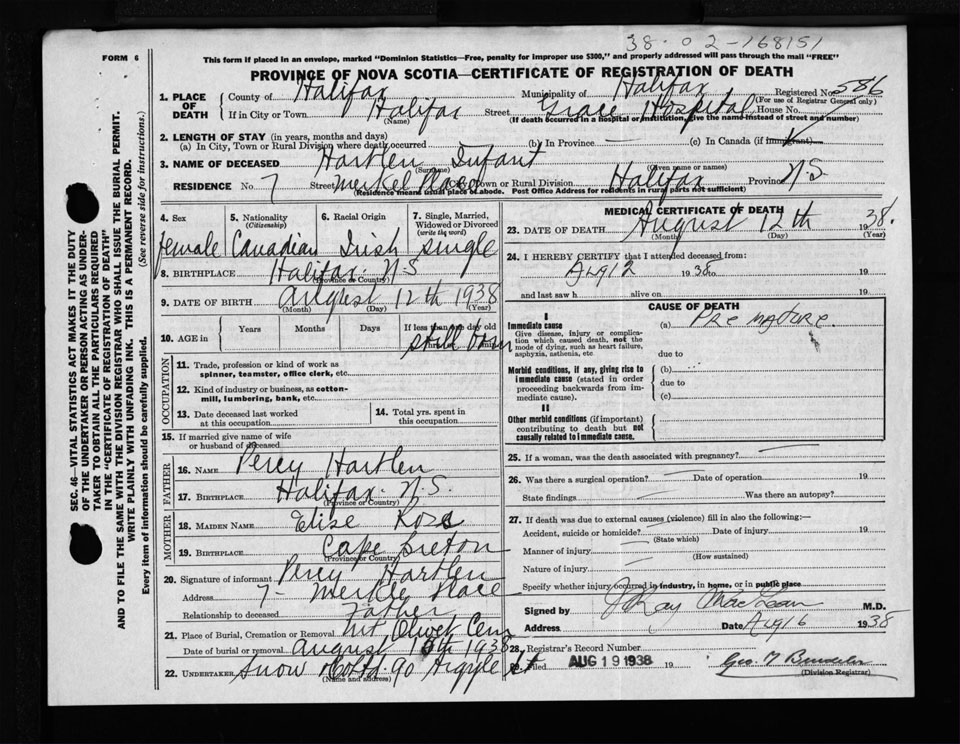 38-02-168151
FORM 6
This form if placed in an envelope, marked "Dominion Statistics—Free, penalty for improper use $300," and properly addressed will pass through the mail "FREE"
PROVINCE OF NOVA SCOTIA—CERTIFICATE OF REGISTRATION OF DEATH
1. PLACE OF DEATH County of Halifax Municipality of Halifax Registered No. 586
(For use of Registrar General only)
If in City or Town Halifax Street Grace Hospital House No.
(Name) (If death occurred in a hospital or institution, give the name instead of street and number)
2. LENGTH OF STAY (in years, months and days)
(a) In City, Town or Rural Division where death occurred (b) In Province (c) In Canada (if immigrant)
3. NAME OF DECEASED Hartlen Infant
(Surname) (Given name or names)
RESIDENCE No. 7 Street Merkel Place City, Town or Rural Division Halifax Province N.S.
(Residence means usual place of abode. Post Office Address for residents in rural parts not sufficient)
4. Sex 5. Nationality (Citizenship) 6. Racial Origin 7. Single, Married, Widowed or Divorced (write the word)
female Canadian Irish single
8. BIRTHPLACE Halifax N.S
(Province or Country)
9. DATE OF BIRTH August 12th 1938
(Month) (Day) (Year)
10. AGE in Years Months Days If less than one day old
still born
OCCUPATION
11. Trade, profession or kind of work as spinner, teamster, office clerk, etc.
12. Kind of industry or business, as cotton-mill, lumbering, bank, etc.
13. Date deceased last worked at this occupation 14. Total yrs. spent in this occupation
15. If married give name of wife or husband of deceased
FATHER
16. NAME Percy Hartlen
17. BIRTHPLACE Halifax N.S.
(Province or Country)
MOTHER
18. MAIDEN NAME Elise Rose
19. BIRTHPLACE Cape Breton
(Province or Country)
20. Signature of informant Percy Hartlen
Address 7- Merkle Place
Relationship to deceased Father
21. Place of Burial, Cremation or Removal Mt Olivet Cem
Date of burial or removal August 1938
22. UNDERTAKER Snow & Co Ltd 90 Argyle St
(Name and address)
MEDICAL CERTIFICATE OF DEATH
23. DATE OF DEATH August 12th 1938.
(Month) (Day) (Year)
24. I HEREBY CERTIFY that I attended deceased from:
Aug 12 1938 to 19
and last saw h alive on 19
CAUSE OF DEATH
I
Immediate cause (a) Premature.
Give disease, injury or complication which caused death, not the mode of dying, such as heart failure, asphyxia, asthenia, etc.
due to
Morbid conditions, if any, giving rise to immediate cause (stated in order proceeding backwards from immediate cause).
(b)
due to
(c)
II
Other morbid conditions (if important) contributing to death but not causally related to immediate cause.
25. If a woman, was the death associated with pregnancy?
26. Was there a surgical operation? Date of operation 19
State findings Was there an autopsy?
27. If death was due to external causes (violence) fill in also the following:—
Accident, suicide or homicide? Date of injury 19
(State which)
Manner of injury
(How sustained)
Nature of injury
Specify whether injury occurred in industry, in home, or in public place
Signed by J Ray MacLean M.D.
Address Date Aug 16 1938
28. Registrar's Record Number
Filed AUG 19 1938 19
(Division Registrar)
SEC. 46—VITAL STATISTICS ACT MAKES IT THE DUTY
OF THE UNDERTAKER OR PERSON ACTING AS UNDER-
TAKER TO OBTAIN ALL THE PARTICULARS REQUIRED
IN THE "CERTIFICATE OF REGISTRATION OF DEATH"
AND TO FILE THE SAME WITH THE DIVISION REGISTRAR WHO SHALL ISSUE THE BURIAL PERMIT.
WRITE PLAINLY WITH UNFADING INK. THIS IS A PERMANENT RECORD.
Every item of information should be carefully supplied. (See reverse side for instructions.)